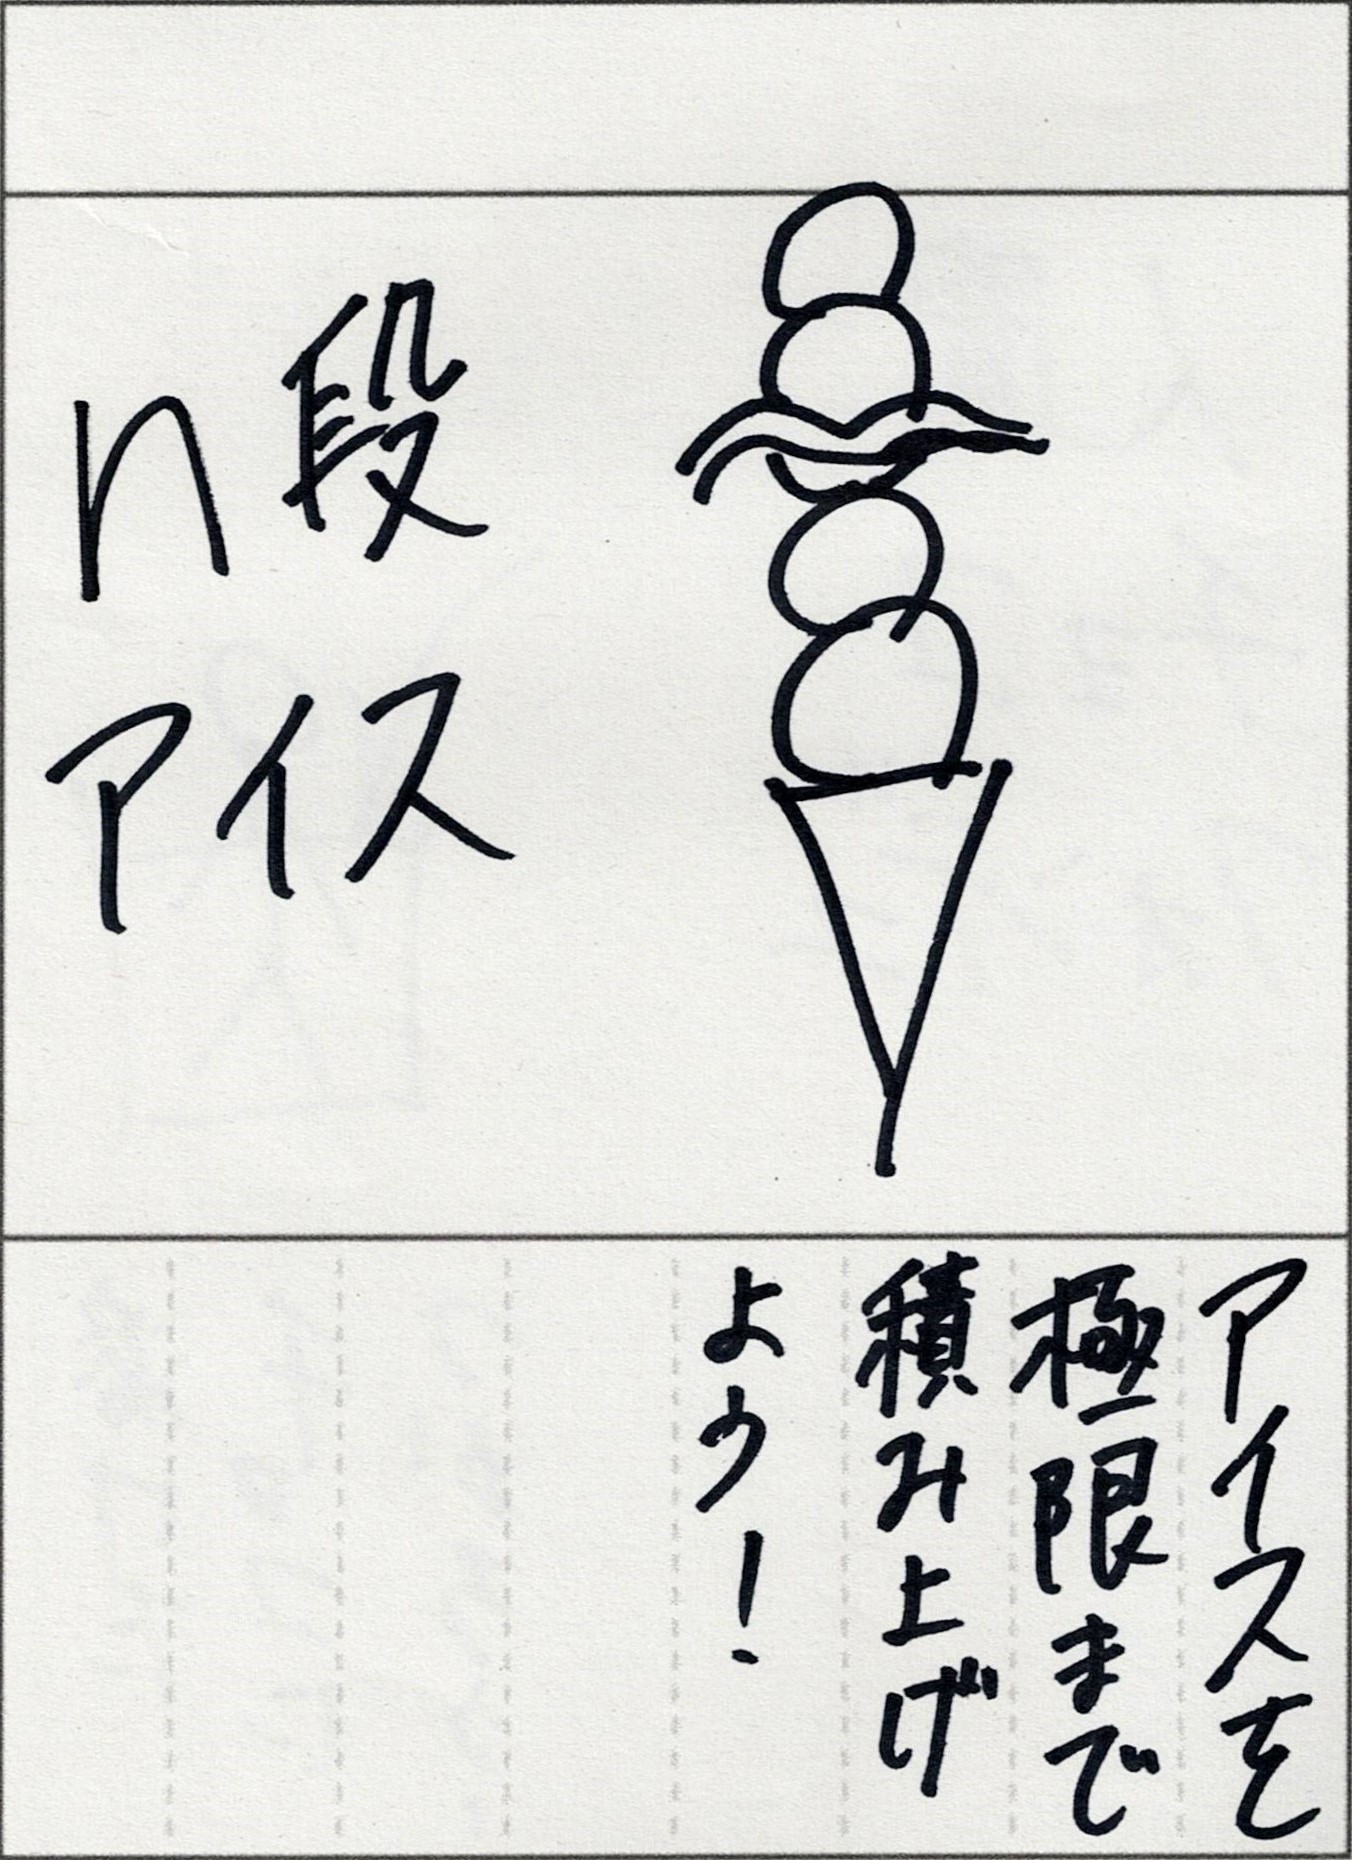 n段
アイス
アイスを
極限まで
積み上げ
よう！